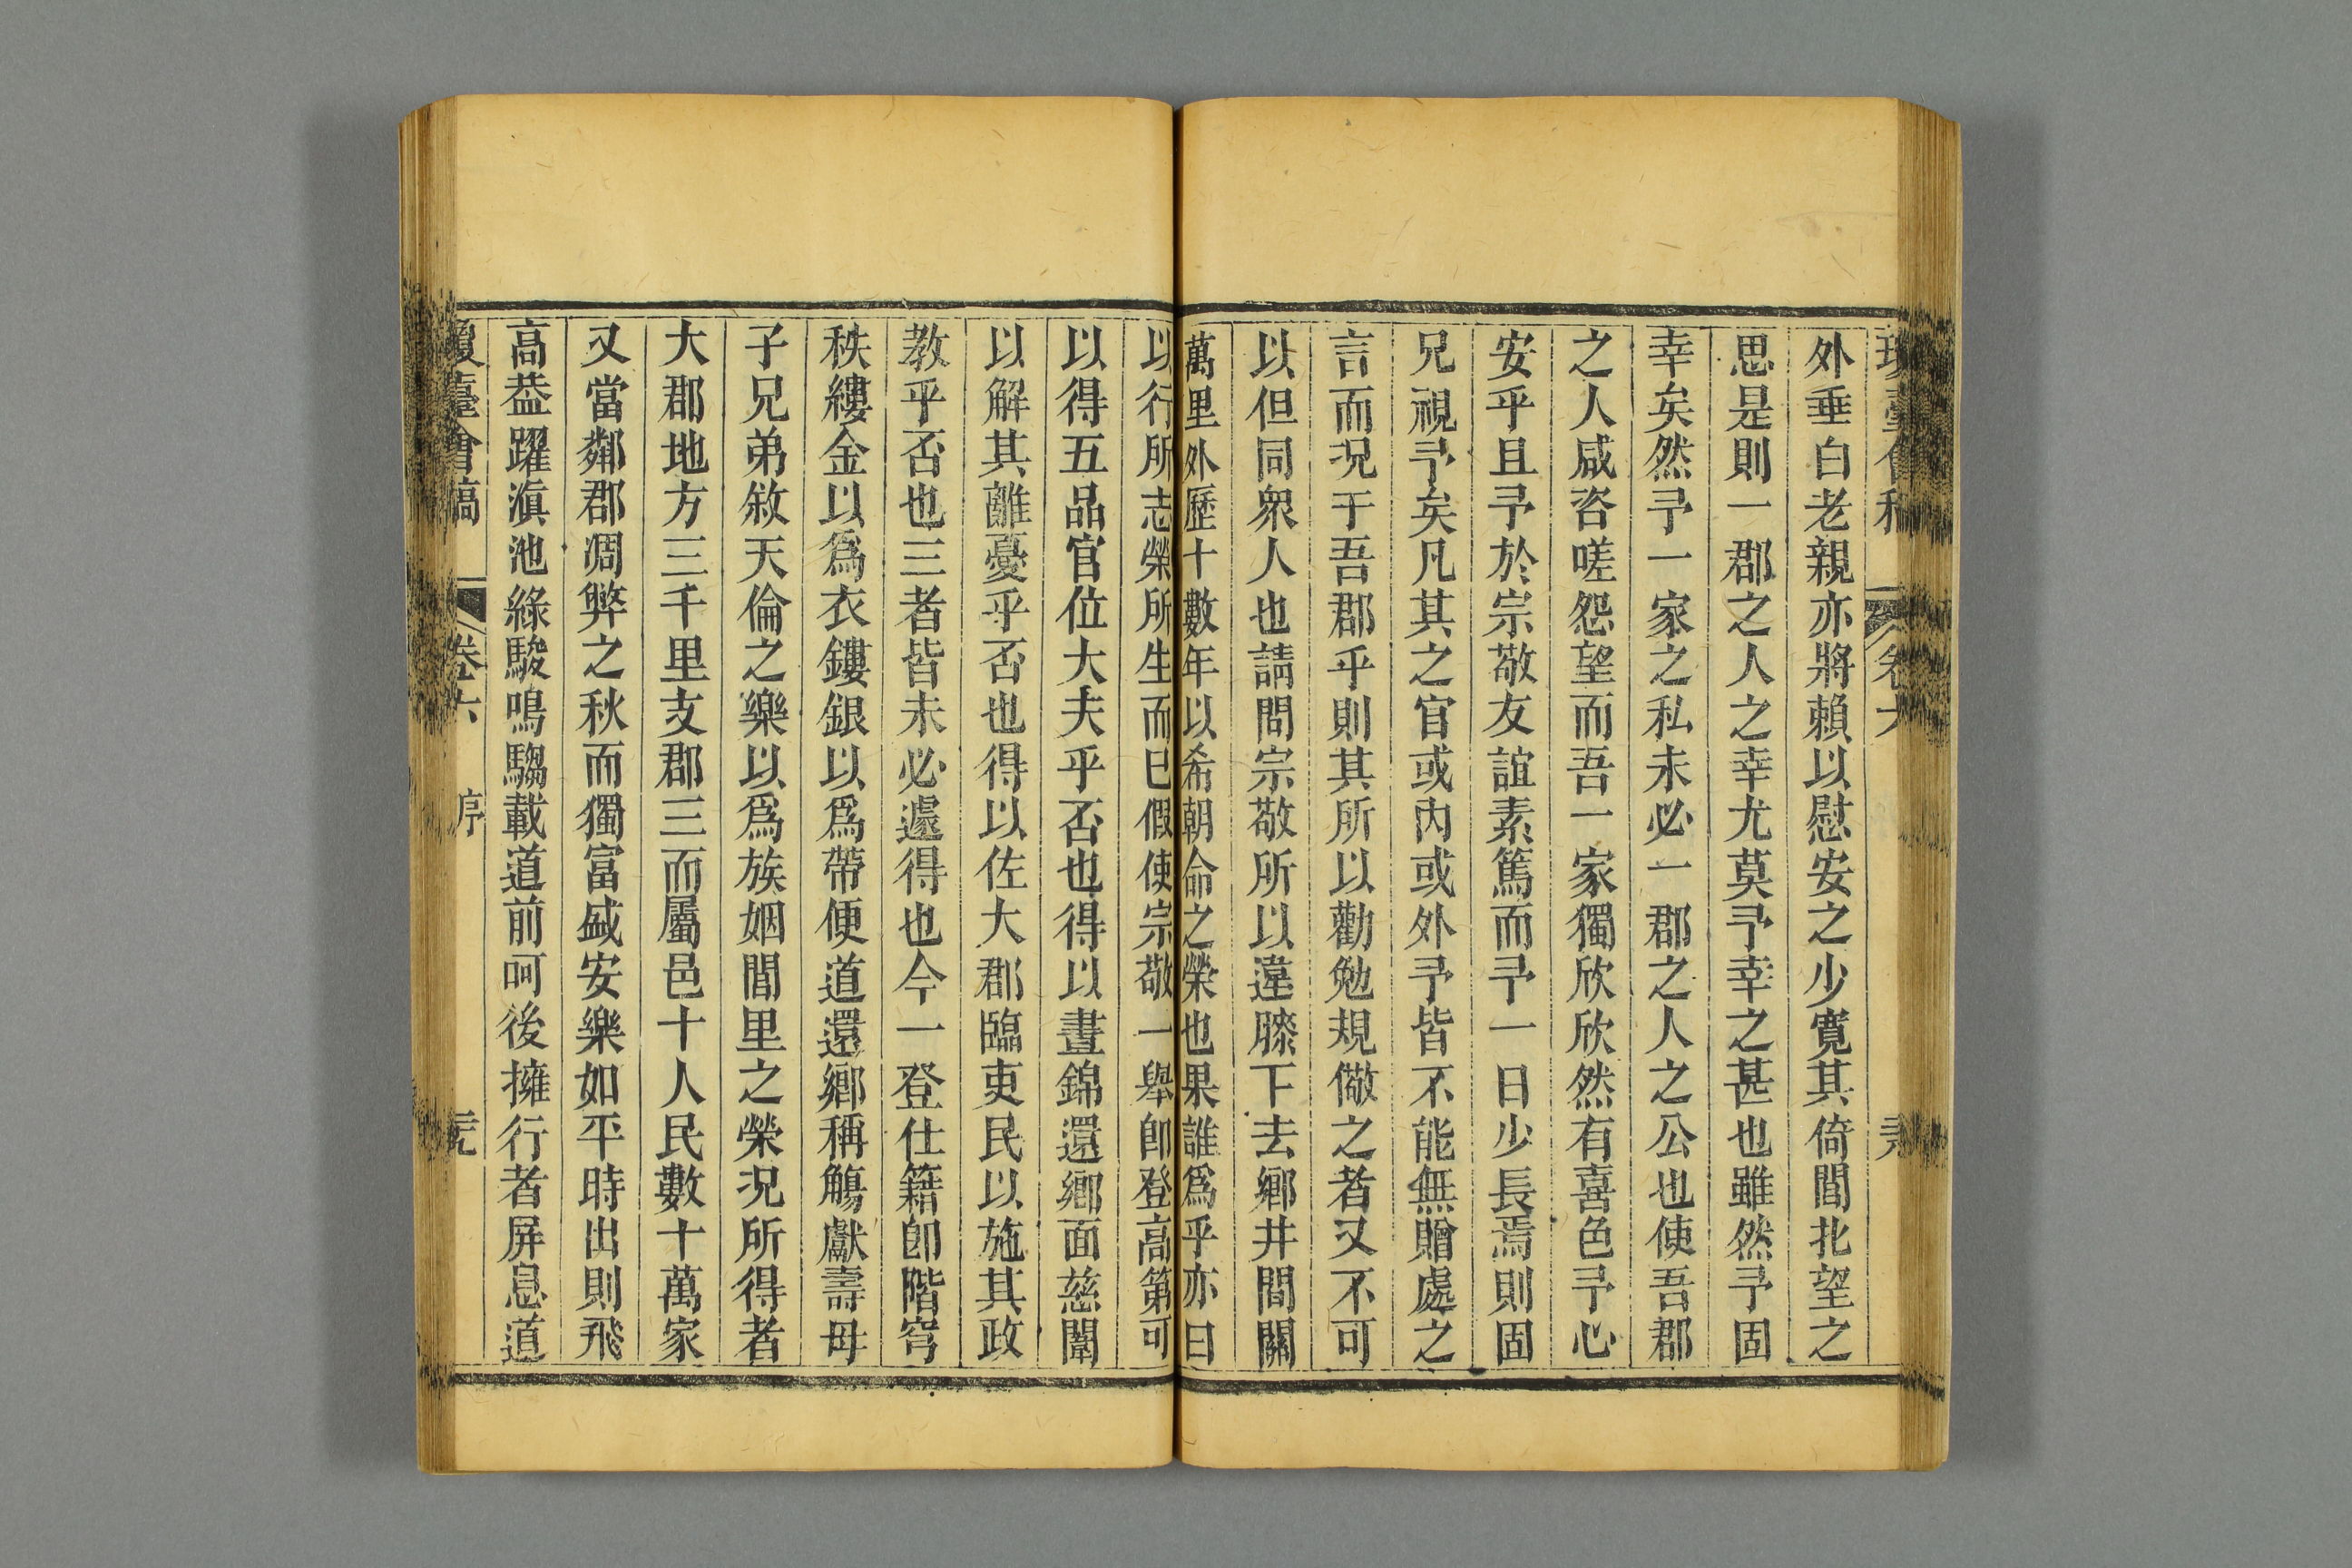 外垂白老親亦將賴以慰安之少寬其倚閭北望之
思是則一郡之人之幸尤莫予幸之甚也雖然予固
幸矣然予一家之私未必一郡之人之公也使吾郡
之人咸咨嗟怨望而吾一家獨欣欣然有喜色予心
安乎且予於宗敬友誼素篤而予一日少長焉則固
兄視予矣凡其之官或內或外予皆不能無贈處之
言而况于吾郡乎則其所以勸勉規儆之者又不可
以但同衆人也請問宗敬所以違膝下去鄉井間關
萬里外歷十數年以希朝命之榮也果誰爲乎亦曰
以行所志榮所生而已假使宗敬一舉即登高第可
以得五品官位大夫乎否也得以晝錦還鄉面慈闈
以解其離憂乎否也得以佐大郡臨吏民以施其政
教乎否也三者皆未必遽得也今一登仕籍即階穹
秩縷金以爲衣鏤銀以爲帶便道還鄉稱觴獻壽母
子兄弟敘天倫之樂以爲族姻閭里之榮况所得者
大郡地方三千里支郡三而屬邑十人民數十萬家
又當鄰郡凋弊之秋而獨富盛安樂如平時出則飛
高葢躍滇池綠駿鳴騶載道前呵後擁行者屏息道
臺會稿 卷六 序